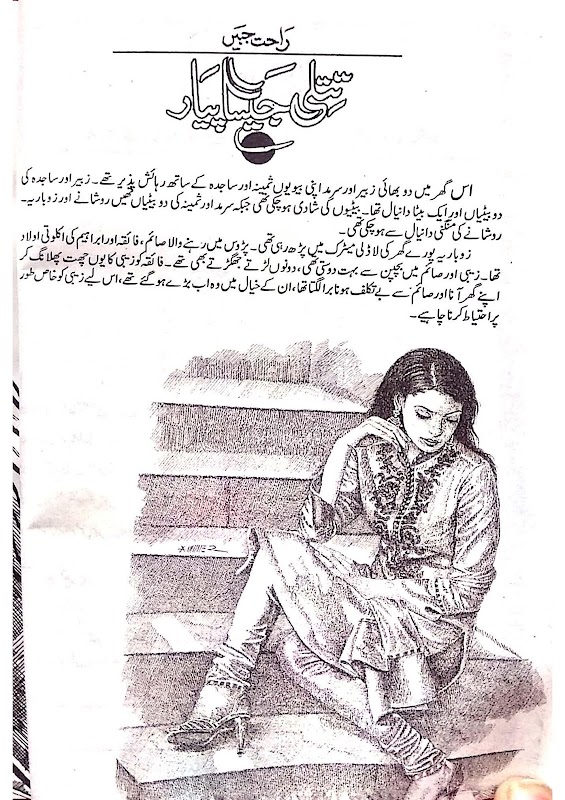 راحت جبیں
تتلی جیسا پیار
اس گھر میں دو بھائی زبیر اور سرمد اپنی بیویوں ثمینہ اور ساجدہ کے ساتھ رہائش پذیر تھے۔ زبیر اور ساجدہ کی
دو بیٹیاں اور ایک بیٹا دانیال تھا۔ بیٹیوں کی شادی ہوچکی تھی جبکہ سرمد اور ثمینہ کی دو بیٹیاں تھیں روشانے اور زوباریہ۔
روشانے کی منگنی دانیال سے ہوچکی تھی۔
زوباریہ پورے گھر کی لاڈلی میٹرک میں پڑھ رہی تھی۔ پڑوس میں رہنے والا صائم، فائقہ اور ابراہیم کی اکلوتی اولاد
تھا۔ زیبی اور صائم میں بچپن سے بہت دوستی تھی، دونوں لڑتے جھگڑتے بھی تھے۔ فائقہ کو زیبی کا یوں چھت پھلانگ کر
اپنے گھر آنا اور صائم سے بے تکلف ہونا برا لگتا تھا، ان کے خیال میں وہ اب بڑے ہوگئے تھے، اس لیے زیبی کو خاص طور
پر احتیاط کرنا چاہیے۔